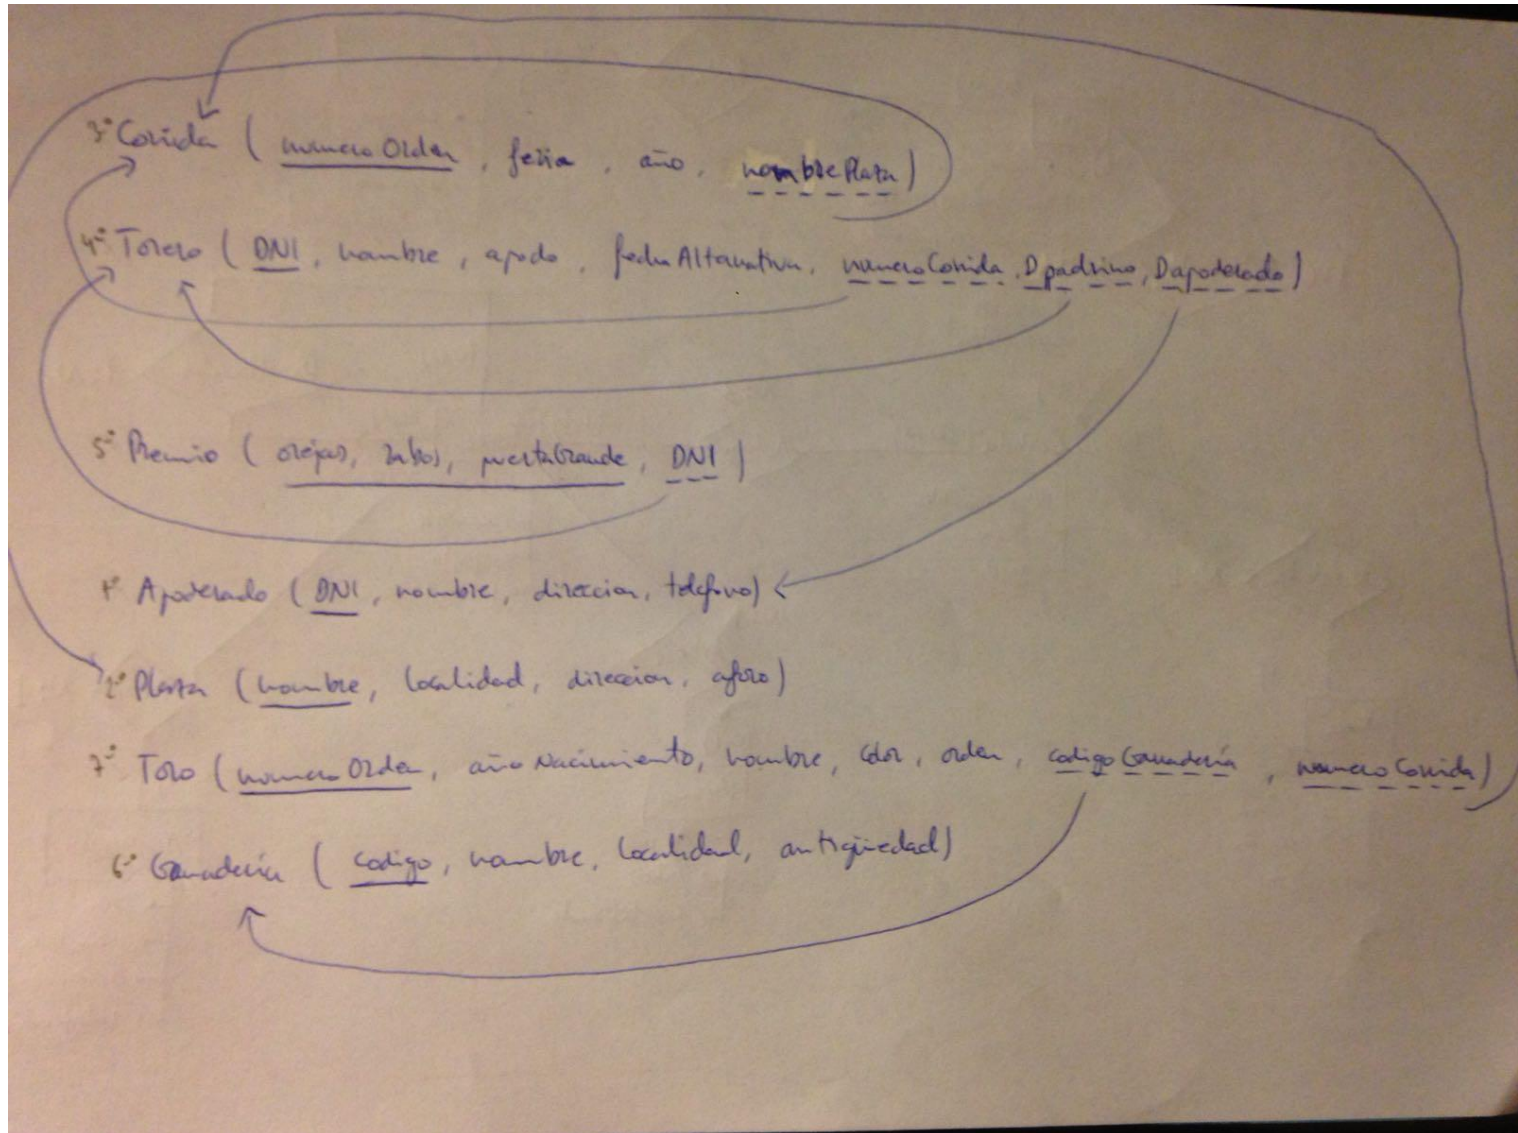 3º Corrida ( numeroOrden, feria, año, nombrePlaza)
4º Torero ( DNI, nombre, apodo, fechaAlternativa, numeroCorrida, Dpadrino, Dapoderado)
5º Premio ( orejas, rabos, puertaGrande, DNI )
1º Apoderado ( DNI, nombre, direccion, telefono)
2º Plaza (nombre, localidad, direccion, aforo)
7º Toro (numeroOrden, añoNacimiento, nombre, color, orden, codigoGanadería, numeroCorrida)
6º Ganadería ( codigo, nombre, localidad, antigüedad)